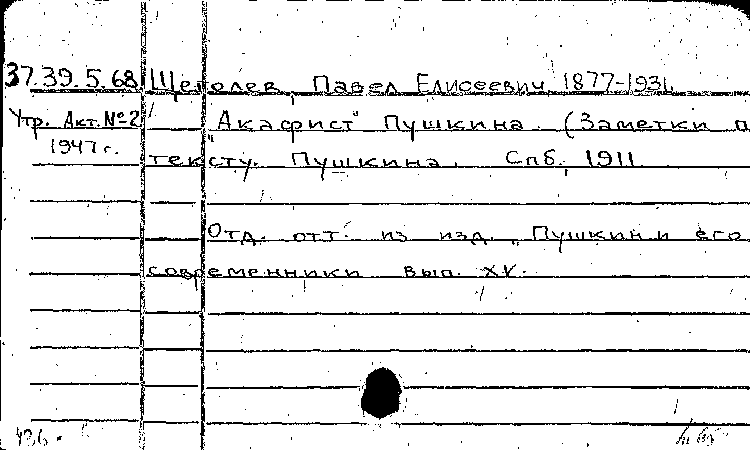 37.39.5.68 Щеголев, Павел Елисеевич, 1877-1931
Утр. Акт. №2
1947 г.
"Акафист" Пушкина. (Заметки п
тексту. Пушкина. Спб. 1911
Отд. отт. из изд. "Пушкин и его
современники" вып. XV.
436.